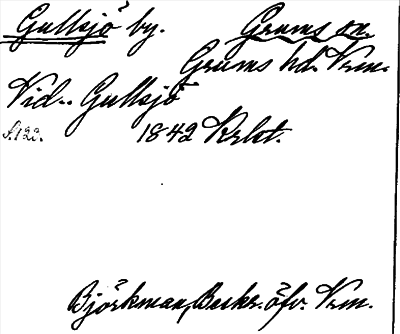 Gullsjö by. Grums sn.
Grums hd. Vrm.
Vid.. Gullsjö
S.122. 1842 Krbt.
Björkman, Beskr. öfv. Vrm.